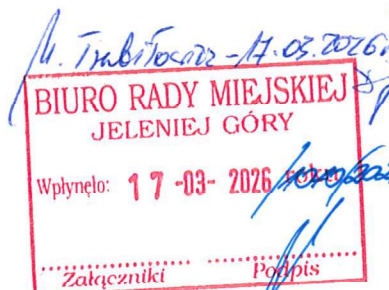 17.03.2026r.
BIURO RADY MIEJSKIEJ
JELENIEJ GÓRY
Wpłynęło: 17 -03- 2026
Załączniki Podpis